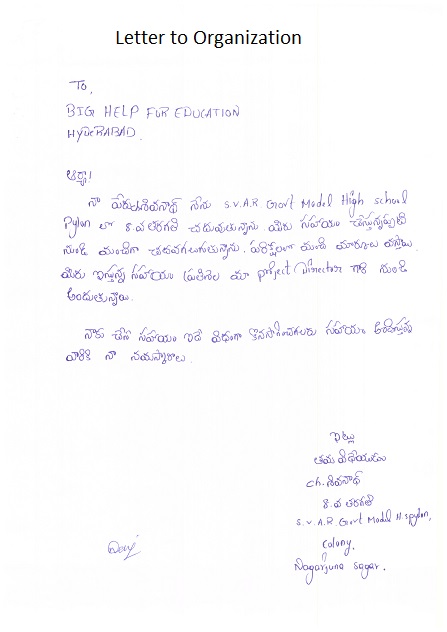 Letter to Organization
To,
BIG HELP FOR EDUCATION
HYDERABAD.
ఆర్యా!
నా పేరు శివనాథ్ నేను S.V.A.R Govt Model High school
Pylon లో 8.వ తరగతి చదువుతున్నాను. మీరు సహాయం చేస్తున్నప్పటి
నుండి మంచిగా చదవగలుగుతున్నాను. పరీక్షలలో మంచి మార్కులు వస్తాయి.
మీరు ఇస్తున్న సహాయం ప్రతినెల మా project Director గారి నుండి
అందుతున్నాయి.
నాకు చేసే సహాయం ఇదే విధంగా కొనసాగించగలరు సహాయం అందిస్తున్న
వారికి నా నమస్కారాలు.
ఇట్లు
తమ విధేయుడు
Ch. శివనాథ్
8.వ తరగతి
S.V.A.R Govt Model H.S pylon,
Colony,
Nagarjuna sagar.